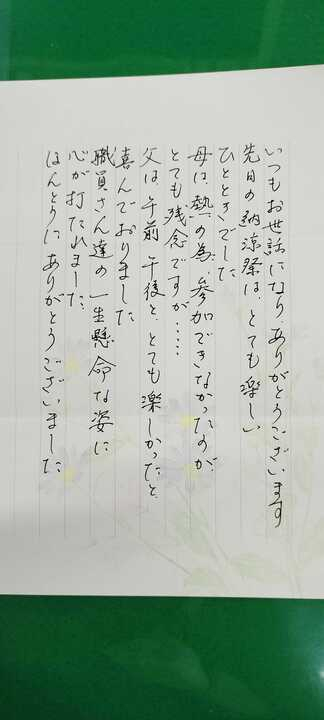 いつもお世話になり、ありがとうございます
先日の納涼祭は、とても楽しい
ひとときでした
母は、熱の為、参加できなかったのが
とても残念ですが……
父は、午前午後と、とても楽しかったと
喜んでおりました
職員さん達の一生懸命な姿に
心が打たれました
ほんとうにありがとうございました